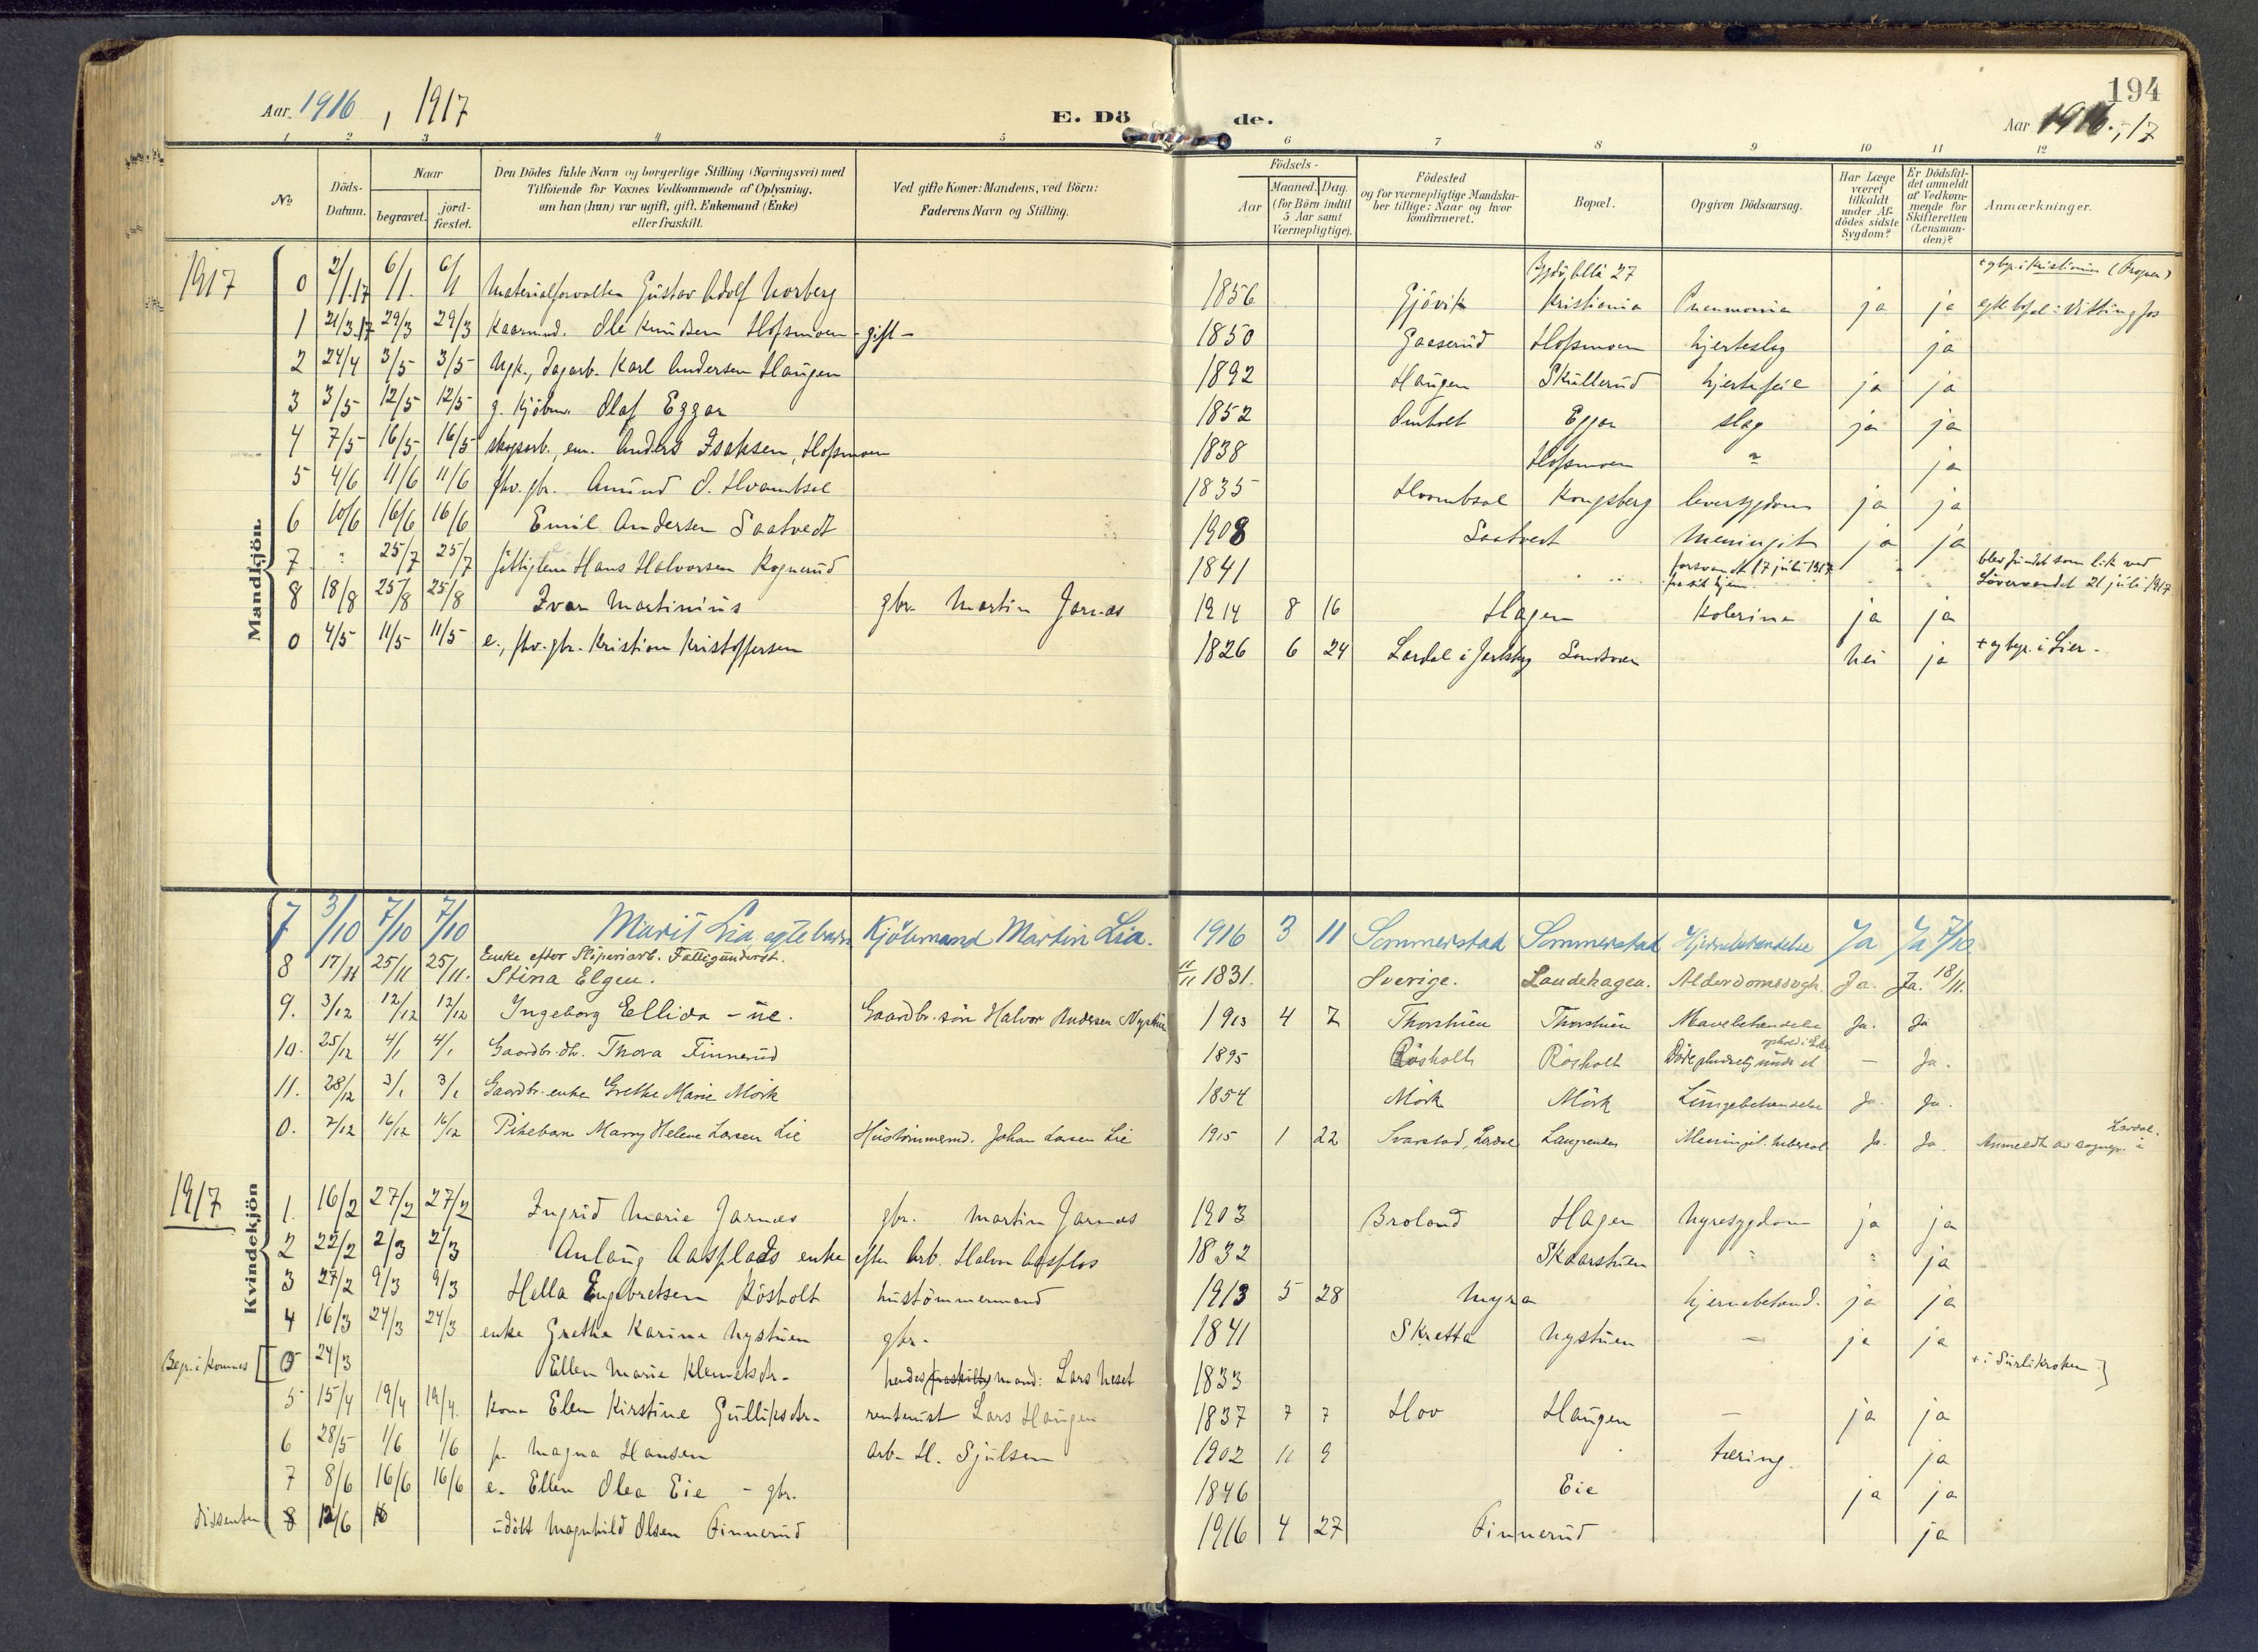 194
Aar. 1916, 1917 E. Dö de. Aar 1916.-17
1 2 3 4 5 6 7 8 9 10 11 12
No. Döds-Datum. Naar begravet. jord-fæstet. Den Dödes fulde Navn og borgerlige Stilling (Næringsvei) med Tilföiende for Voxnes Vedkommende af Oplysning, om han (hun) var ugift, gift, Enkemand (Enke) eller fraskilt. Ved gifte Koner: Mandens, ved Börn: Faderens Navn og Stilling. Födsels- Aar Maaned. Dag. (for Börn indtil 5 Aar samt Værnepligtige). Födested og for værnepligtige Mandskaber tillige: Naar og hvor konfirmeret. Bopæl. Opgiven Dödsaarsag. Har Læge været tilkaldt under Afdödes sidste Sygdom? Er Dödsfaldet anmeldt af Vedkommende for Skifteretten (Lensmanden)? Anmærkninger.
Mandkjön.
1917 0 2/1.17 6/1. 6/1 Materialforvalter Gustav Adolf Norberg 1856 Gjövik Bygdö, Allé 27 Kristiania Pneumonia ja ja + og begr. i Kristiania (Propen) egtl. bopæl: Vittingfos
1 21/3.17 29/3 29/3 Kaarmd. Ole Knudsen Hofsmoen - gift - 1850 Gaaserud Hofsmoen hjerteslag ja
2 24/4 3/5 3/5 Ugk., dagarb. Karl Andersen Haugen 1892 Haugen Skullerud hjertefeil ja ja
3 3/5 12/5 12/5 g. Kjöbm. Olaf Eggar 1852 Omholt Eggar slag ja ja
4 7/5 16/5 16/5 skogarb., em. Anders Isaksen, Hofsmoen 1838 Hofsmoen ? ja
5 4/6 11/6 11/6 fhv. gbr. Amund O. Hvambsal 1835 Hvambsal Kongsberg leversygdom ja ja
6 10/6 16/6 16/6 Emil Andersen Saatvedt 1908 Saatvedt Meningit ja ja
7 " 25/7 25/7 fattiglem Hans Halvorsen Rognerud 1841 " " forsvandt 17 juli 1917 fra sit hjem " " blev fundet som lik ved Lövervandet 21 juli 1917
8 18/8 25/8 25/8 Ivar Martinius gbr. Martin Jarnes 1914 8 16 Hagen Kolerina ja ja
0 4/5 11/5 11/5 e., fhv. gbr. Kristian Kristoffersen 1826 6 24 Lardal i Jarlsberg Landsvær nei ja + og begr. i Lier.
Kvindekjön
7 3/10 7/10 7/10 Marit Lia, egtebarn Kjöbmand Martin Lia. 1916 3 11 Sommerstad Sommerstad Hjernebetændelse Ja Ja 7/10
8 17/11 25/11 25/11. Enke efter Sliperiarb. Fattigunderst. Stina Elgen. 11/11 1831. Sverige. Landehagen. Alderdomssvagh. Ja. Ja. 18/11.
9. 3/12 12/12 12/12 Ingeborg Ellida - ue. Gaardbr. sön Halvor Andersen Nystuen 1913 4 7 Thorstuen Thorstuen Mavebetændelse Ja. Ja
10. 25/12 4/1 4/1 Gaardbr. dtr. Thora Finnerud 1895 Rösholt Rösholt Döde pludselig under et — Ja.
11. 28/12 3/1 3/1 Gaardbr. enke Grethe Marie Mörk 1854 Mörk Mörk Lungebetændelse Ja. Ja.
0. 7/12 16/12 16/12 Pikebarn Marry Helene Larsen Lie Hustömmermd. Johan Larsen Lie 1915 1 22 Svarstad, Lardal Meningit. tubercul. Ja. Ja. Anmeldt av sognepr. i Lardal.
1917 1. 16/2 27/2 27/2 Ingrid Marie Jarnes gbr. Martin Jarnes 1903 Broland Hagen Nyresygdom ja ja
2 22/2 2/3 2/3 Anlaug Aasplads enke efter Arb. Halvor Aasplas 1832 Skaarstuen " " ja
3 27/2 9/3 9/3 Hella Engebretsen Rösholt hustömmermand 1913 5 28 Myra hjernebetænd. ja ja
4 16/3 24/3 24/3 enke Grethe Karine Nystuen gbr. 1841 Skretta Nystuen — ja ja
Begr. i Komnes [0 24/3 Ellen Marie Klemetsdtr. hendes fraskilte mand: Lars Neset 1833 + i Surlikroken ]
5 15/4 19/4 19/4. kone Elen Kirstine Gulliksdtr. rentenist Lars Haugen 1837 7 7 Hov Haugen — ja ja
6 28/5 1/6 1/6 p. Magna Hansen arb. H. Sjulsen 1902 11 9 tæring. ja
7 8/6 16/6 16/6 e. Ellen Olea Eie - gbr. 1846 Eie ja ja
dissenter 8 12/6 16 udöbt Magnhild Olsen Finnerud 1916 4 27 Finnerud ja